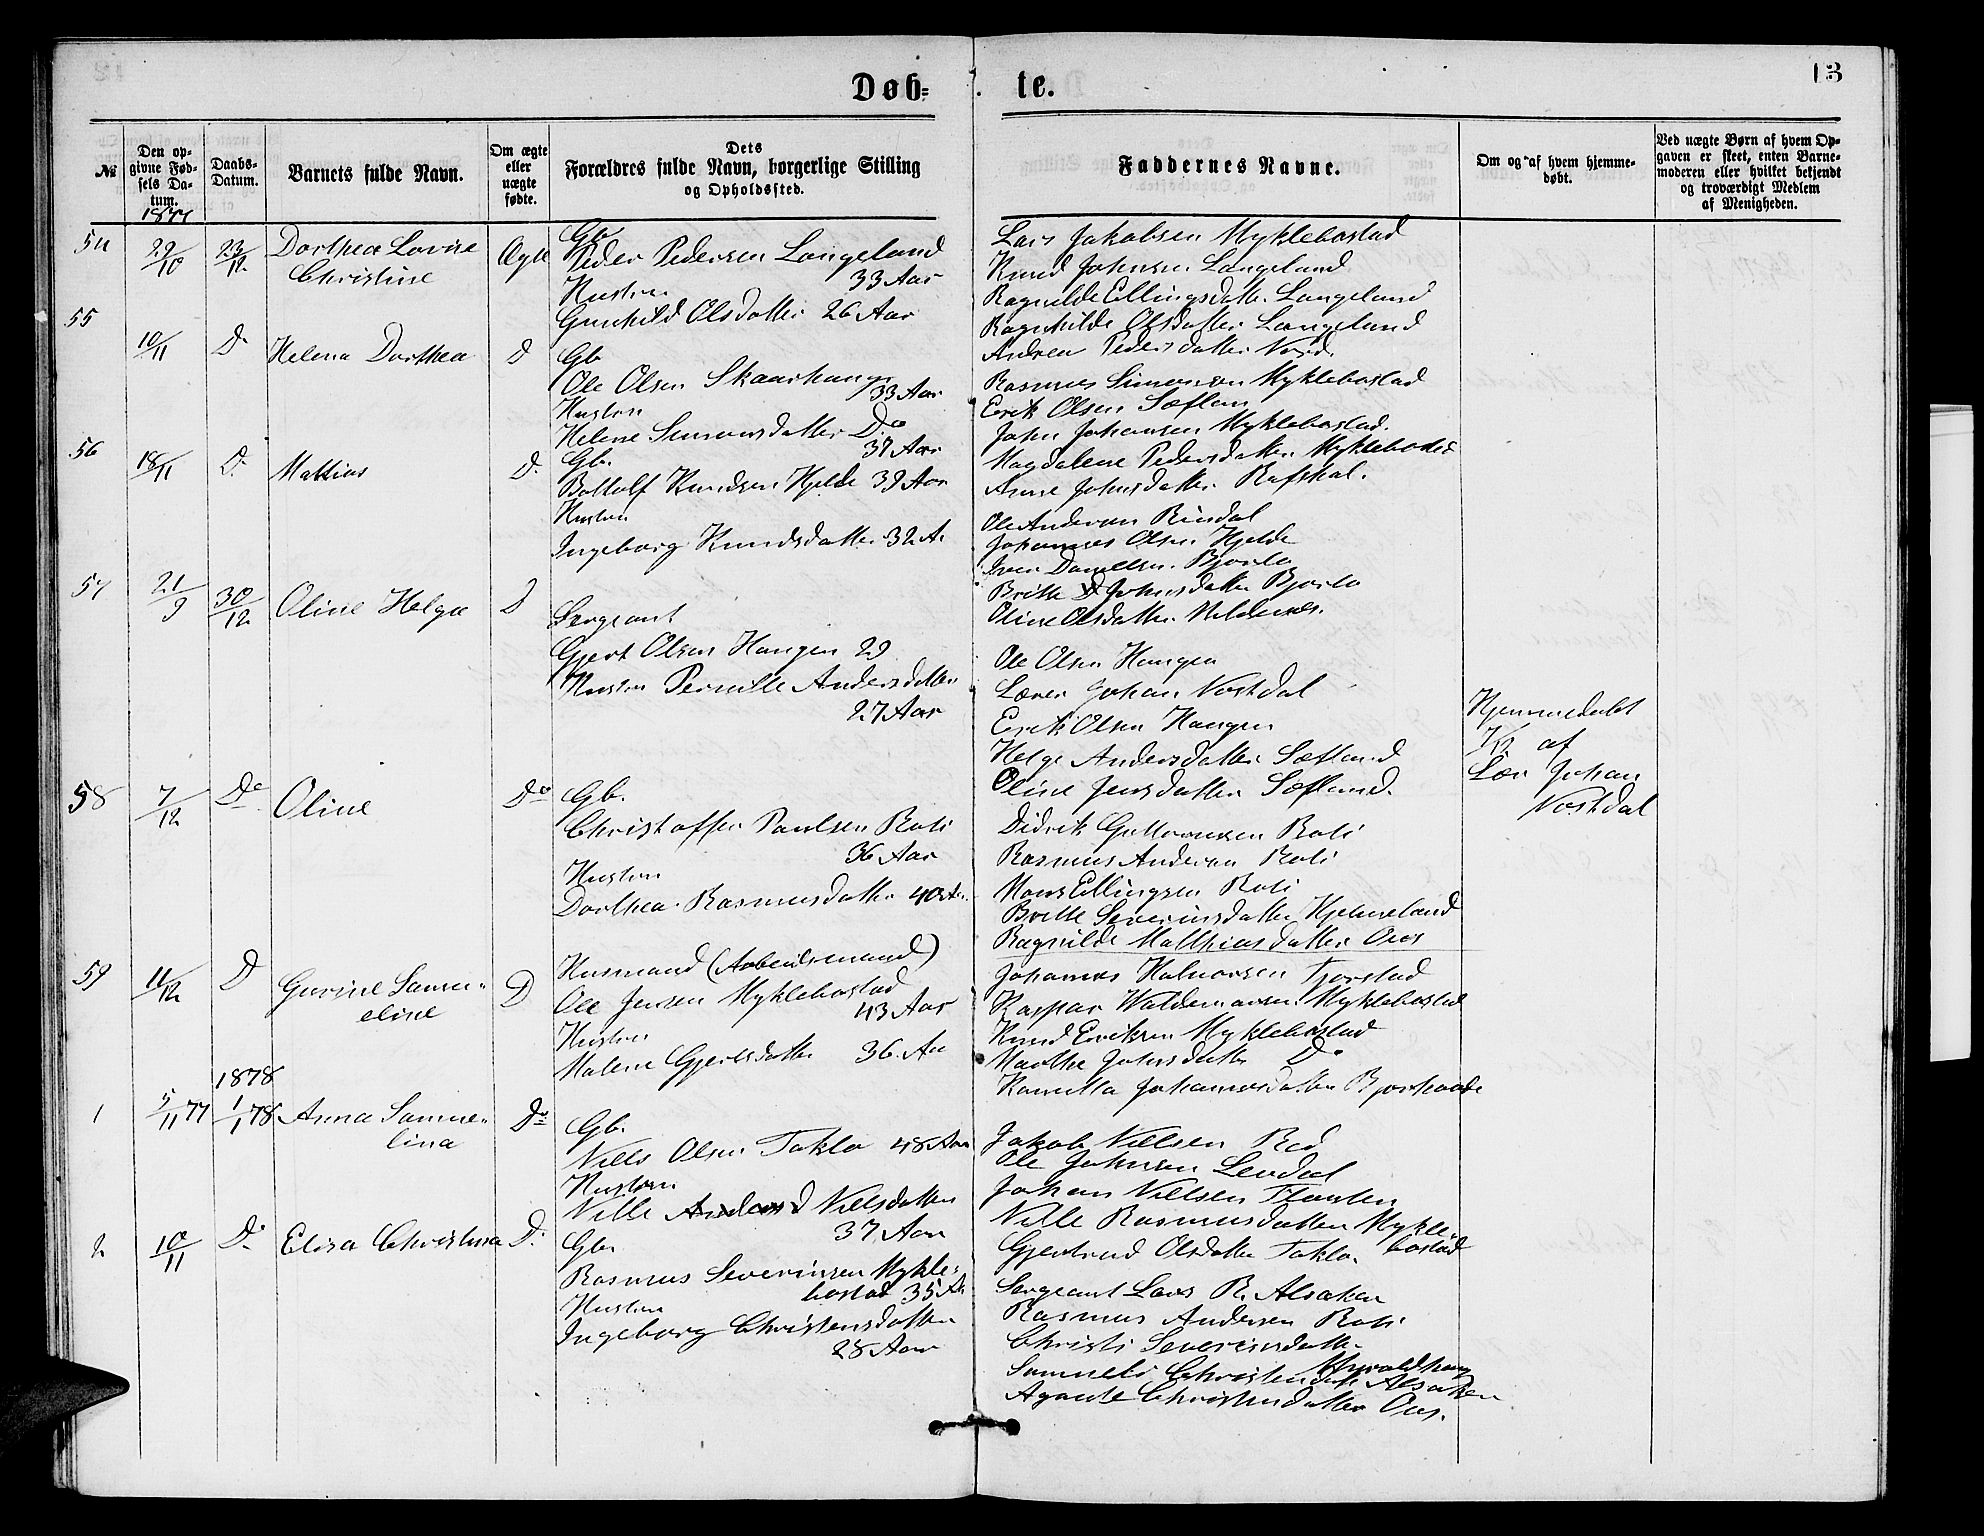 Døb= te.
13
№
Den op-
givne Fød-
sels Da-
tum.
Daabs-
Datum.
Barnets fulde Navn.
Om ægte
eller
uægte
fødte.
Dets
Forældres fulde Navn, borgerlige Stilling
og Opholdssted.
Faddernes Navne.
Om og af hvem hjemme-
døbt.
Ved uægte Børn af hvem Op-
gaven er skeet, enten Barne-
moderen eller hvilket bekjendt
og troværdigt Medlem
af Menigheden.
1877
54
22/10
23/12
Dorthea Lovise
Christine
Ægte
Gb.
Peder Pedersen Langeland
33 Aar
Hustru
Gunhild Olsdatter 26 Aar
Lars Jakobsen Myklebostad
Knud Johnsen Langeland
Ragnilde Ellingsdatter Langeland
Ragnhilde Olsdatter Langeland
Andrea Pedersdatter
55
10/11
Do
Helena Dorthea
D
Gb
Ole Olsen Skaarhaug
33 Aar
Hustru
Helene Simonsdatter Do
37 Aar
Rasmus Simonsen Myklebostad
Erik Olsen Sæfland
John Johansen Myklebostad.
Magdalene Pedersdatter Myklebostad
Anne Johnsdatter Rafskal.
56
18/11
D.
Mattias
D.
Gb.
Bottolf Knudsen Hjelle 39 Aar
Hustru
Ingeborg Knudsdatter 32 A.
Ole Andersen Rinsdal
Johannes Olsen Hjelde
Iver Danielsen Bjorlo
Britte Johnsdatter Bjorlo
Oline Olsdatter
57
21/9
30/12
Oline Helga
D
Sergeant
Gjert Olsen Haugen 29
Hustru Pernille Andersdatter
27 Aar
Ole Olsen Haugen
Lærer Johan Nostdal
Erik Olsen Haugen
Helge Andersdatter Sætland
Oline Jensdatter Sæfland.
Hjemmedøbt
af
Lær Johan
Nostdal
58
7/12
Do
Oline
Do
Gb.
Christoffer Paulsen Roti
36 Aar
Hustru
Dorthea Rasmusdatter 40 Aar
Didrik Guttormsen Roti
Rasmus Andersen Roti
Mons Ellingsen Roti
Britte Severinsdatter Hjelmeland
Ragnilde Matthiasdatter Ous
59
11/12
D
Gurine Samu=
eline
D
Husmand (Arbeidsmand)
Ole Jensen Myklebostad
43 Aar
Hustru
Malene Gjertsdatter 36 Aar
Johannes Halvorsen Tjorstad
Kaspar Waldemarsen Myklebostad
Knud Eriksen Myklebostad
Marthe Johnsdatter Do
Kamilla Johannesdatter
1878
1
5/11 77
1/1 78
Anna Samue=
lina
Do
Gb.
Nills Olsen Taklo 48 Aar
Hustru
Nille Nilsdatter
37 Aar
Jakob Nillsen Red
Ole Johnsen Levdal
Johan Nillsen
Nille Rasmusdatter Mykle=
bostad
Gjertrud Olsdatter Taklo.
2
10/11
Do
Elisa Christina
D.
Gb.
Rasmus Severinsen Mykle=
bostad 35 Aar
Hustru
Ingeborg Christensdatter
28 Aar
Sergeant Lars R. Alsaker
Rasmus Andersen Roti
Christi Severinsdatter
Christensdatter Alsaker
Agaute Christensdatter Ous.